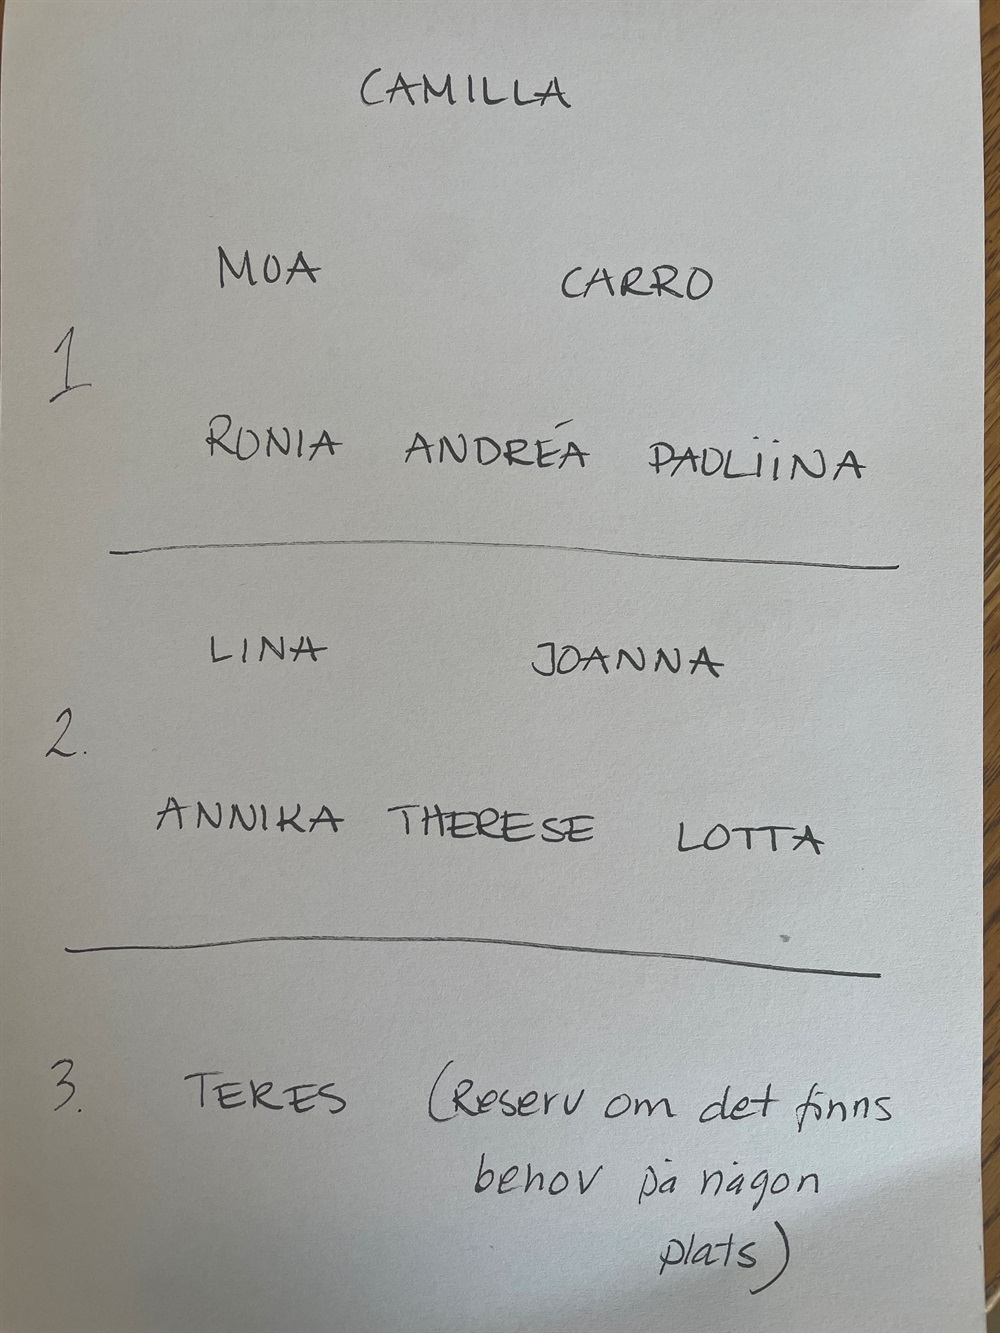 CAMILLA
MOA CARRO
1
RONIA ANDRÉA PAOLIINA
LINA JOANNA
2.
ANNIKA THERESE LOTTA
3. TERES (Reserv om det finns
behov på någon
plats)